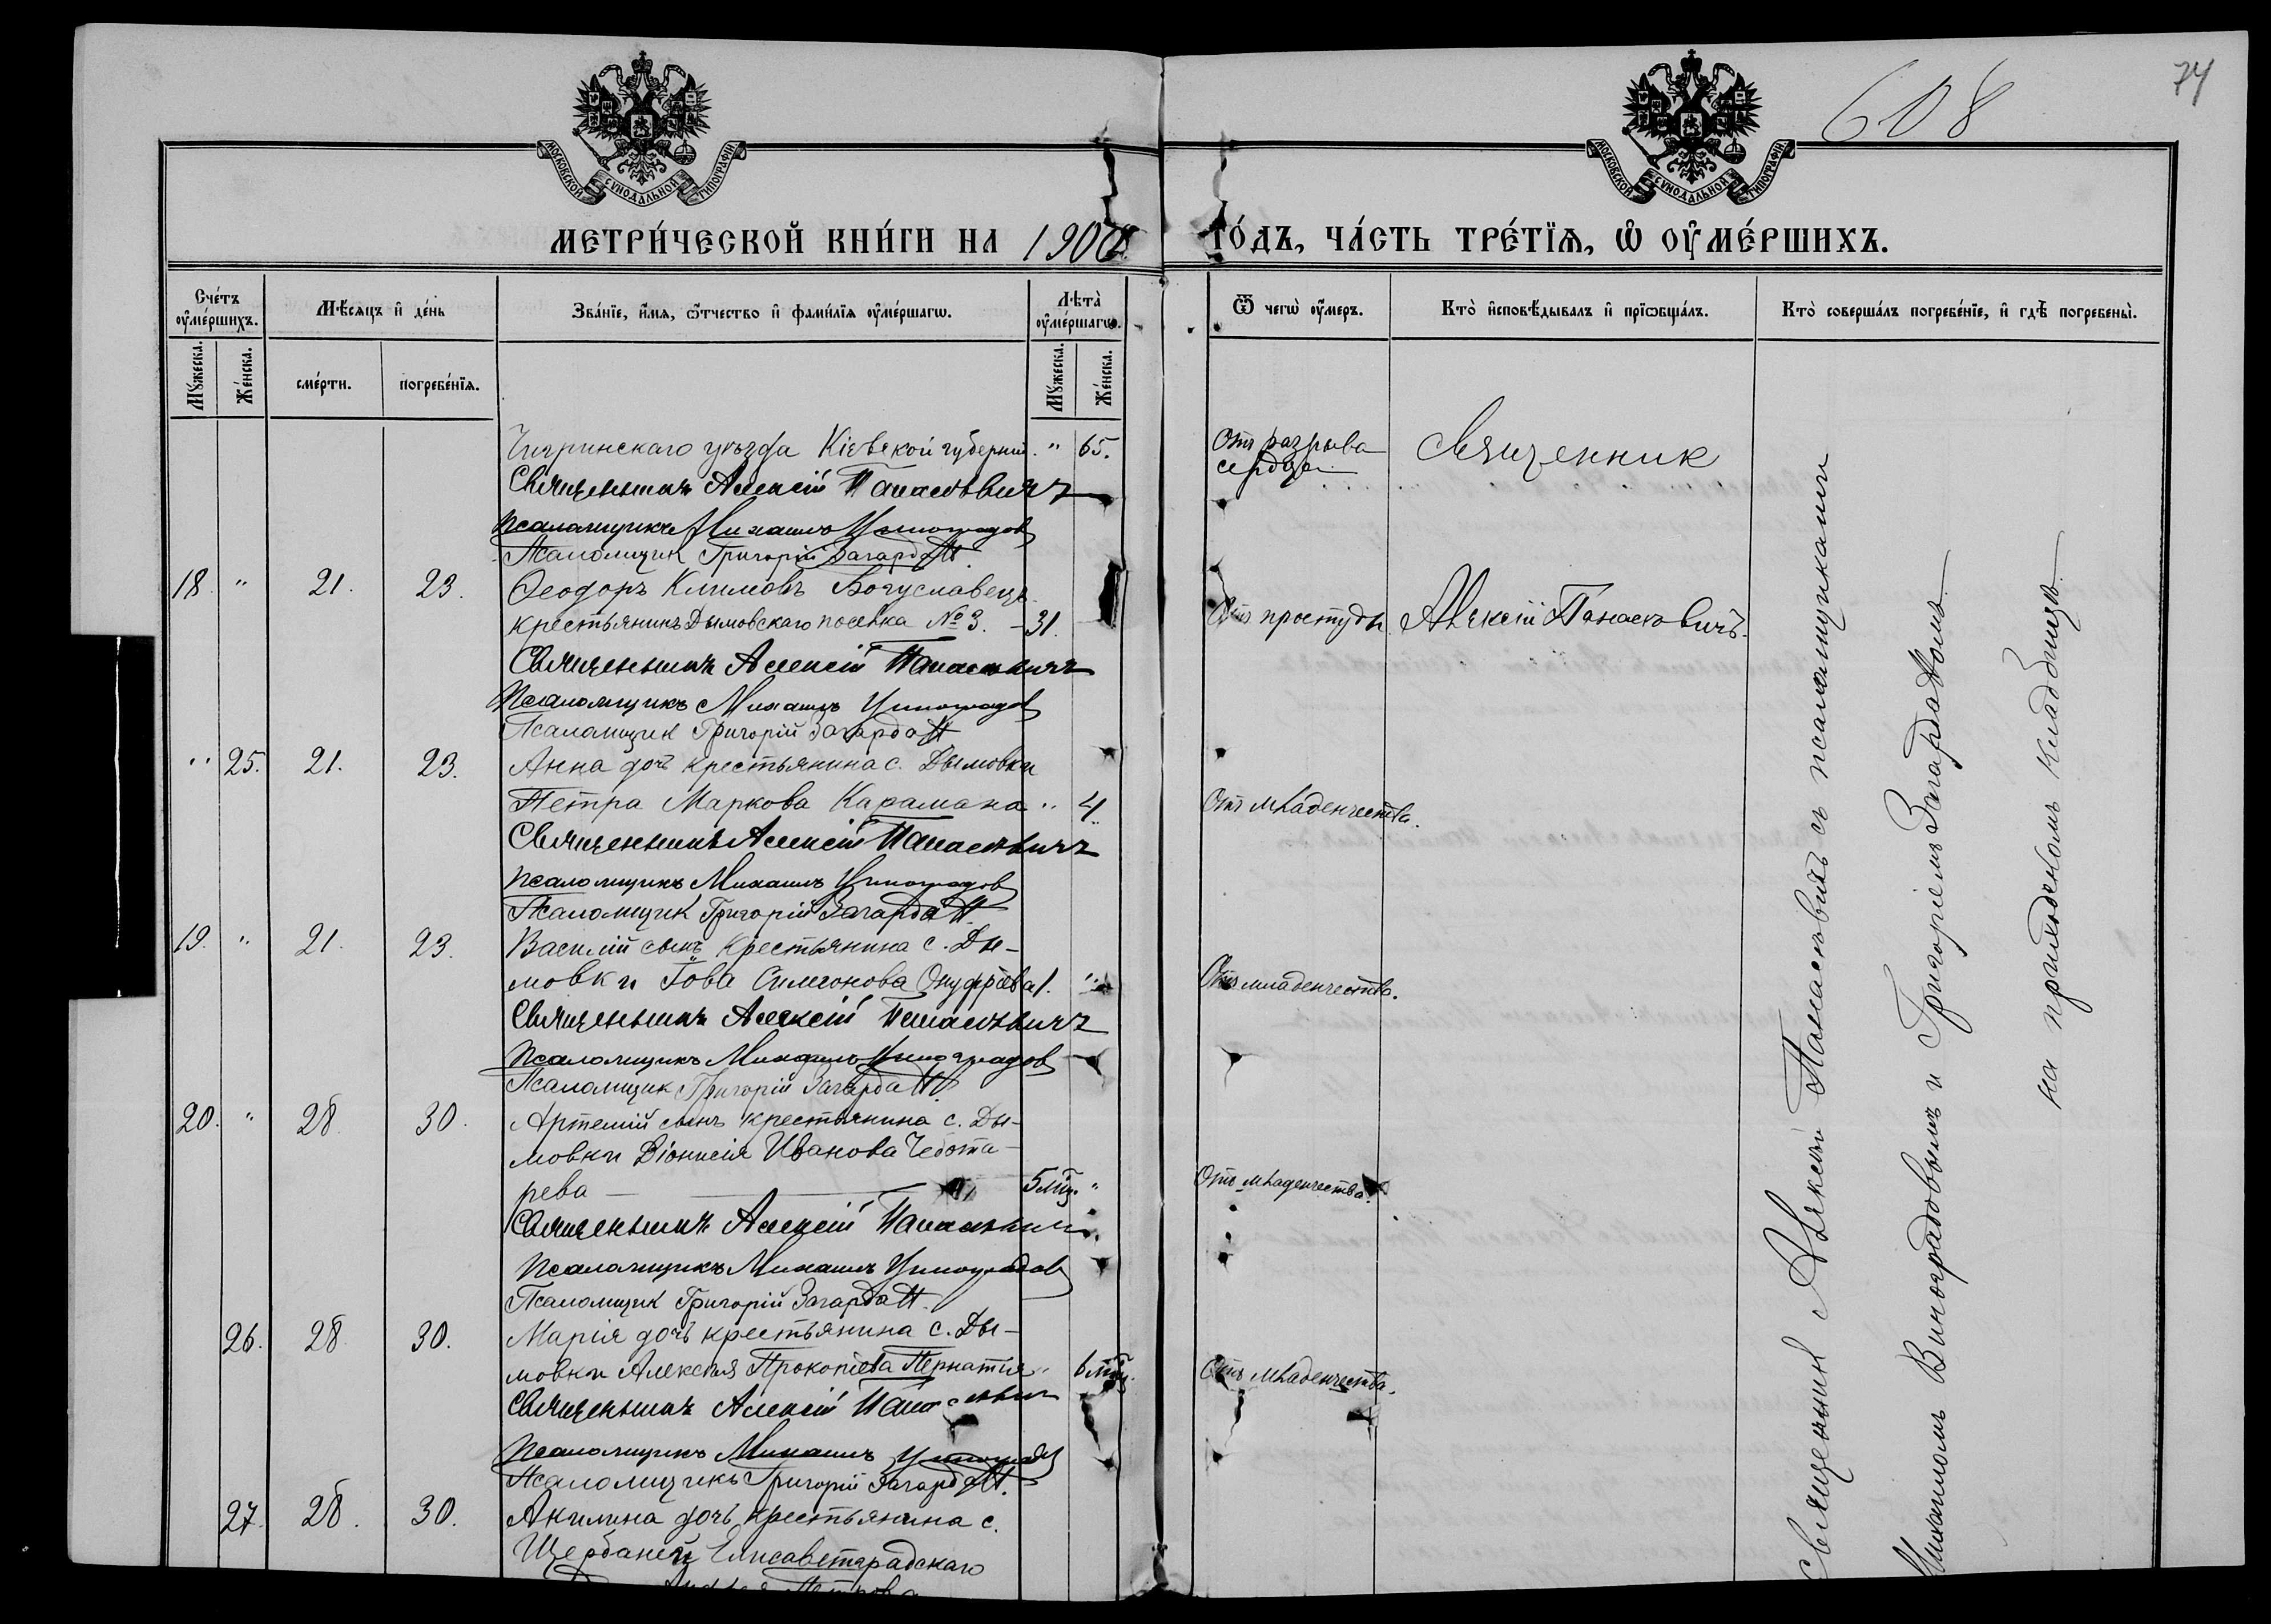 608
74
МОСКОВСКОЙ СУНОДАЛЬНОЙ ТИПОГРАФІИ
МОСКОВСКОЙ СУНОДАЛЬНОЙ ТИПОГРАФІИ
МЕТРИ́ЧЕСКОЙ КНИ́ГИ НА 1900
ГО́ДЪ, ЧА́СТЬ ТРЕ́ТЇѦ, Ѡ ОУМЕ́РШИХЪ.
Сче́тъ оуме́ршихъ.
Мѣ́сяцъ и де́нь
Зва́нїе, и́мя, ѻ́тчество и фами́лїя оуме́ршагѡ.
Лѣта̀ оуме́ршагѡ.
Ѿ чегѡ̀ оу́меръ.
Кто̀ исповѣ́дывалъ и прїѡбща́лъ.
Кто̀ соверша́лъ погребе́нїе, и гдѣ̀ погребены̀.
Мꙋ́жеска.
Же́нска.
сме́рти.
погребе́нїя.
Мꙋ́жеска.
Же́нска.
Чигринскаго уѣзда Кіевской губерніи. " 65. Отъ разрыва сердца. Священник
Священникъ Алексій Панасевичъ
Псаломщикъ Михаилъ Виноградов
Псаломщик Григорій Загардан
18. " 21. 23. Ѳеодоръ Климовъ Богуславецъ
крестьянинъ Дымовскаго поселка № 3. – 31. Отъ простуды. Алексій Панасевичъ.
Священникъ Алексій Панасевичъ
Псаломщикъ Михаилъ Виноградов
Псаломщик Григорій Загардан
" 25. 21. 23. Анна дочь крестьянина с. Дымовки
Петра Маркова Карамана " 4 Отъ младенчества.
Священникъ Алексій Панасевичъ
Псаломщикъ Михаилъ Виноградов
Псаломщик Григорій Загардан
19. " 21. 23. Василій сынъ крестьянина с. Ды-
мовки Іова Симеонова Онуфріева 1. " Отъ младенчества.
Священникъ Алексій Панасевичъ
Псаломщикъ Михаилъ Виноградов
Псаломщик Григорій Загардан
20. " 28. 30. Артемій сынъ крестьянина с. Ды-
мовки Діонисія Иванова Чебота-
рева — 5 мц. " Отъ младенчества.
Священникъ Алексій Панасевич
Псаломщикъ Михаилъ Виноградов
Псаломщик Григорій Загардан
26. 28. 30. Марія дочь крестьянина с. Ды-
мовки Алексѣя Прокопіева " 6 мц. Отъ младенчества.
Священникъ Алексій Панасевич
Псаломщикъ Михаилъ Виноградов
Псаломщикъ Григорій Загардан.
27. 28. 30. Акилина дочь крестьянина с.
Щербаней Елисаветградскаго
Петрова
Священник Алексѣй Панасевичъ съ псаломщиками
Михаиломъ Виноградовымъ и Григоріемъ Загарданомъ
на приходскомъ кладбищѣ